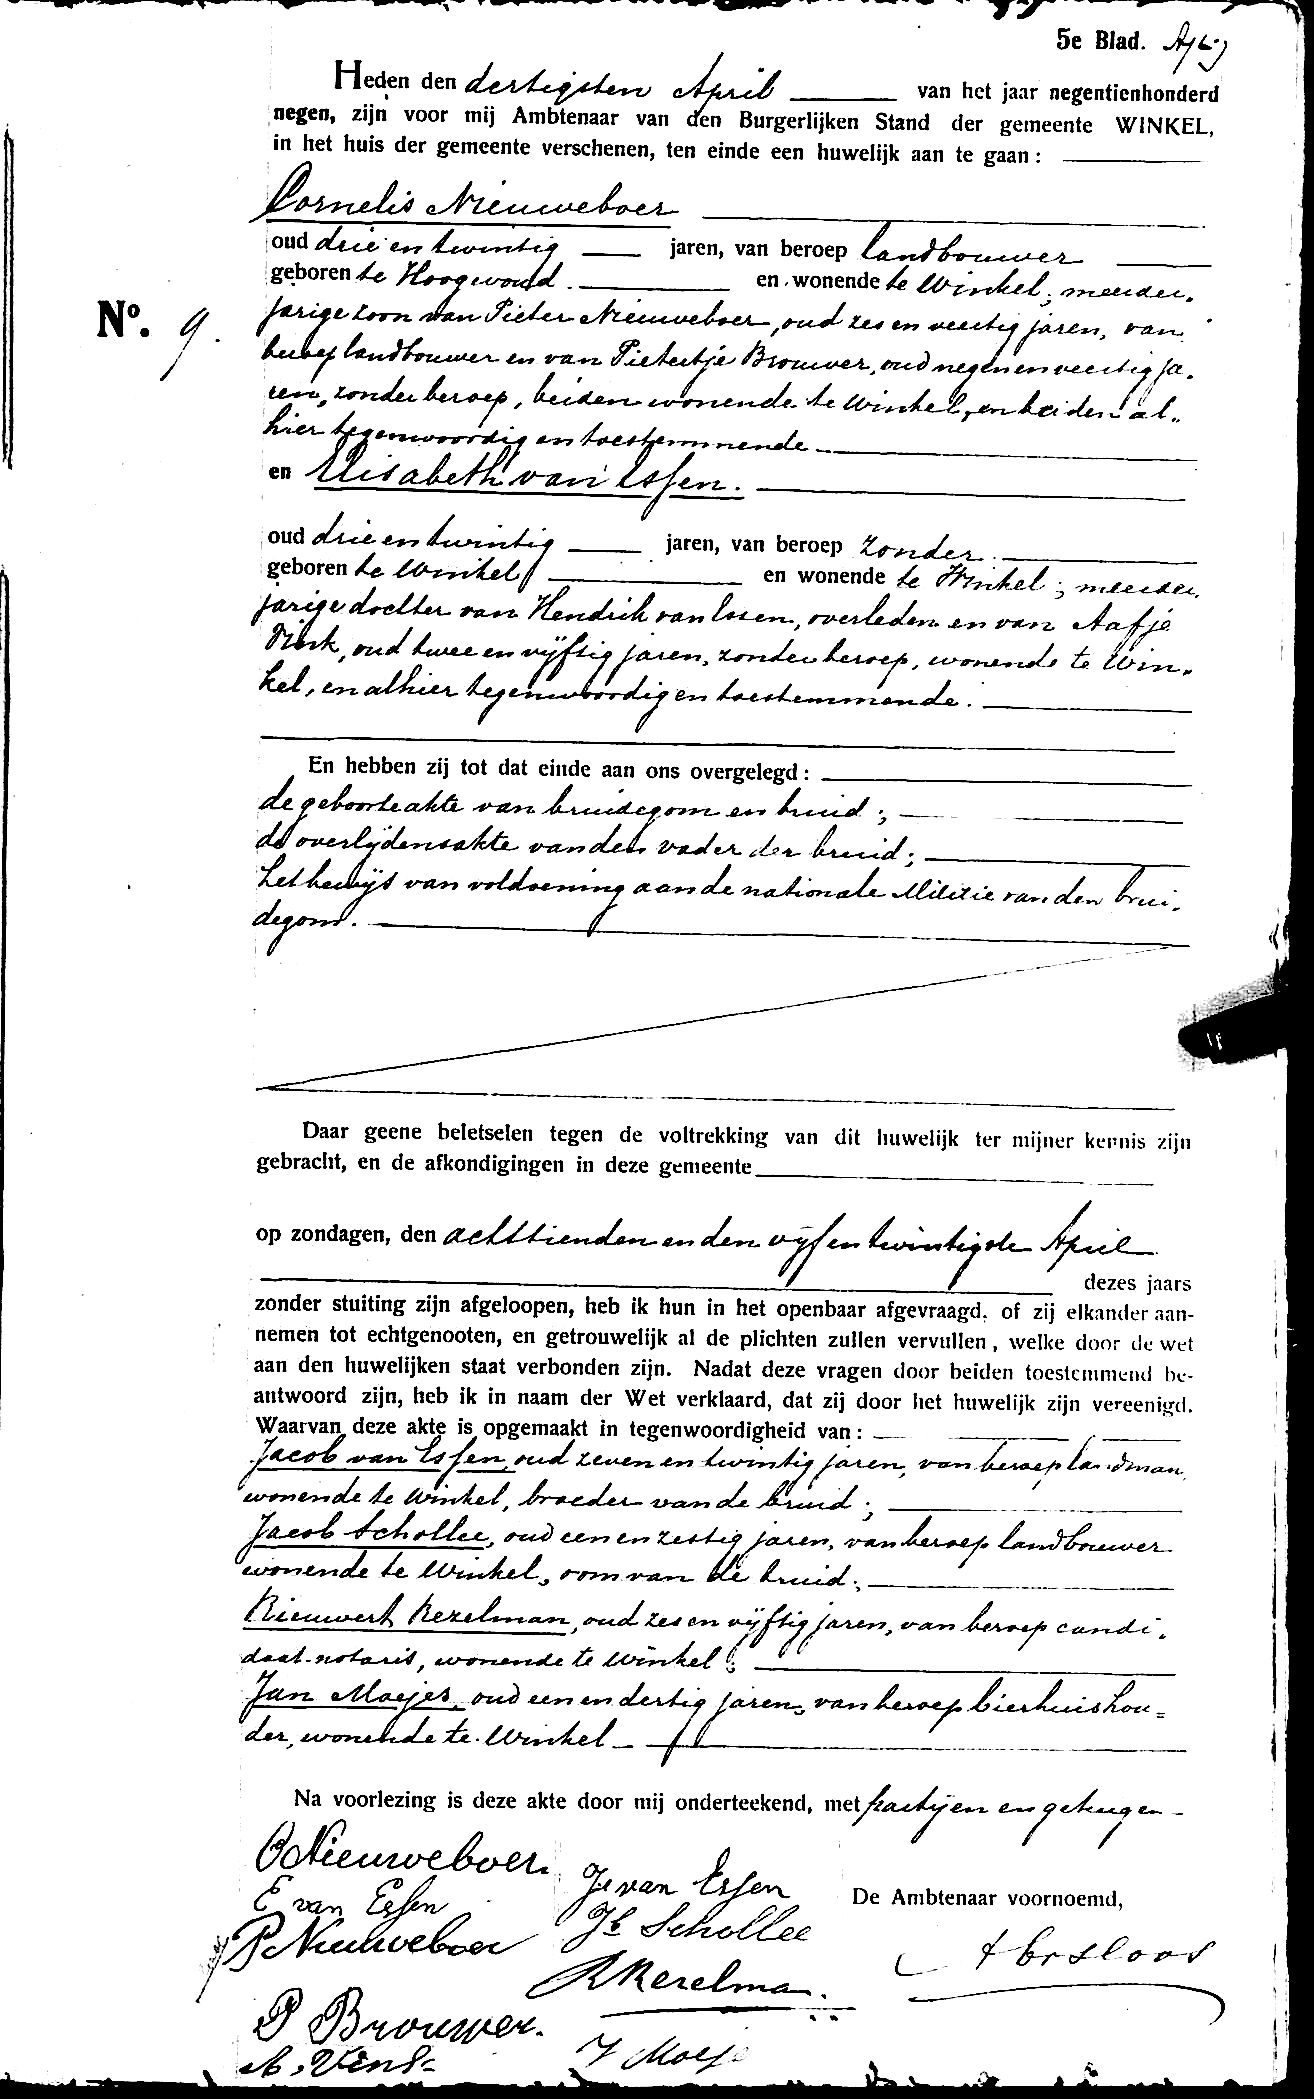 5e Blad.
Heden den dertigsten April van het jaar negentienhonderd
negen, zijn voor mij Ambtenaar van den Burgerlijken Stand der gemeente WINKEL,
in het huis der gemeente verschenen, ten einde een huwelijk aan te gaan:
Cornelis Nieuweboer
oud drie en twintig jaren, van beroep landbouwer
geboren te Hoogwoud en wonende te Winkel; meerder-
No. 9.
jarige zoon van Pieter Nieuweboer, oud zes en veertig jaren, van
beroep landbouwer en van Pietertje Brouwer, oud negen en veertig ja-
ren, zonder beroep, beiden wonende te Winkel, en beiden al-
hier tegenwoordig en toestemmende
en Elisabeth van Essen.
oud drie en twintig jaren, van beroep zonder
geboren te Winkel en wonende te Winkel; meerder-
jarige dochter van Hendrik van Essen, overleden en van Aafje
oud twee en vijftig jaren, zonder beroep, wonende te Win-
kel, en alhier tegenwoordig en toestemmende.
En hebben zij tot dat einde aan ons overgelegd:
de geboorteakte van bruidegom en bruid;
de overlijdensakte van den vader der bruid;
het bewijs van voldoening aan de nationale Militie van den brui-
degom.
Daar geene beletselen tegen de voltrekking van dit huwelijk ter mijner kennis zijn
gebracht, en de afkondigingen in deze gemeente
op zondagen, den achttienden en den vijf en twintigste April
dezes jaars
zonder stuiting zijn afgeloopen, heb ik hun in het openbaar afgevraagd, of zij elkander aan-
nemen tot echtgenooten, en getrouwelijk al de plichten zullen vervullen, welke door de wet
aan den huwelijken staat verbonden zijn. Nadat deze vragen door beiden toestemmend be-
antwoord zijn, heb ik in naam der Wet verklaard, dat zij door het huwelijk zijn vereenigd.
Waarvan deze akte is opgemaakt in tegenwoordigheid van:
Jacob van Essen, oud zeven en twintig jaren, van beroep landman,
wonende te Winkel, broeder van de bruid;
Jacob Schollee, oud een en zestig jaren, van beroep landbouwer
wonende te Winkel, oom van de bruid;
Rieuwert Rezelman, oud zes en vijftig jaren, van beroep candi-
daat-notaris, wonende te Winkel;
Jan Moejes, oud een en dertig jaren, van beroep bierhuishou-
der, wonende te Winkel
Na voorlezing is deze akte door mij onderteekend, met partijen en getuigen
C Nieuweboer.
E van Essen
P Nieuweboer
P Brouwer.
Jb van Essen
Jb Schollee
R Rezelman.
J Moejes
De Ambtenaar voornoemd,